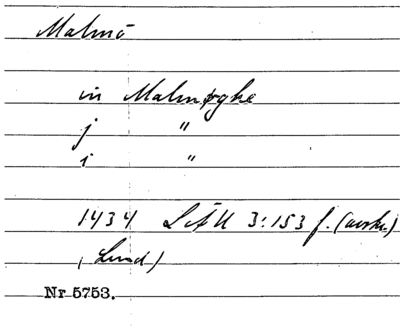 Malmö
in Malmøghe
j "
i "
1434 LÄU 3:153 f. (avskr.)
(Lund)
Nr 5753.